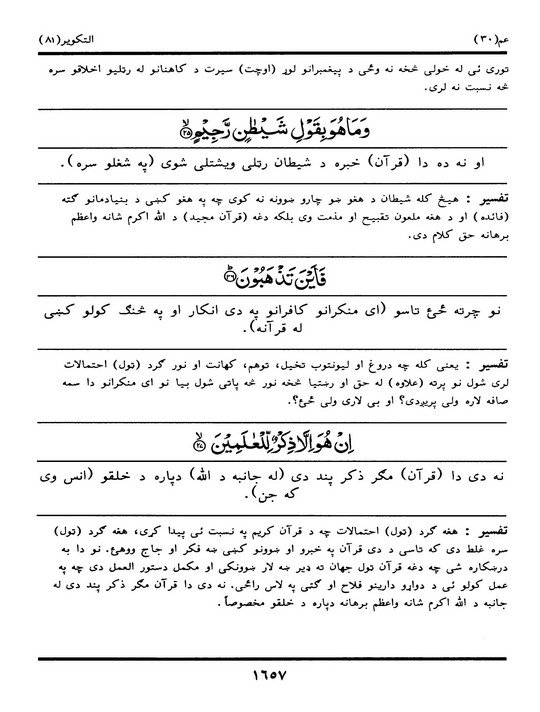 عم(۳۰) التکویر(۸۱)
توری ئی له خولی څخه نه وځی د پیغمبرانو لوړ (اوچت) سیرت د کاهنانو له رټلیو اخلاقو سره
څه نسبت نه لری.
وَمَا هُوَ بِقَوْلِ شَيْطٰنٍ رَّجِيْمٍ ﴿۲۵﴾
او نه ده دا (قرآن) خبره د شیطان رټلی ویشتلی شوی (په شغلو سره).
تفسیر : هیڅ کله شیطان د هغو ښو چارو ښوونه نه کوی چه په هغو کښی د بنیادمانو گټه
(فائده) او د هغه ملعون تقبیح او مذمت وی بلکه دغه (قرآن مجید) د الله اکرم شانه واعظم
برهانه حق کلام دی.
فَاَيْنَ تَذْهَبُوْنَ ﴿۲۶﴾
نو چرته ځئ تاسو (ای منکرانو کافرانو په دی انکار او په څنگ کولو کښی
له قرآنه).
تفسیر : یعنی کله چه دروغ او لیونتوب تخیل، توهم، کهانت او نور گرد (ټول) احتمالات
لری شول نو پرته (علاوه) له حق او رښتیا څخه نور څه پاتی شول بیا نو ای منکرانو دا سمه
صافه لاره ولی پریږدی؟ او بی لاری ولی ځئ؟.
اِنْ هُوَ اِلَّا ذِكْرٌ لِّلْعٰلَمِيْنَ ﴿۲۷﴾
نه دی دا (قرآن) مگر ذکر پند دی (له جانبه د الله) دپاره د خلقو (انس وی
که جن).
تفسیر : هغه گرد (ټول) احتمالات چه د قرآن کریم په نسبت ئی پیدا کړی، هغه گرد (ټول)
سره غلط دی که تاسی د دی قرآن په خبرو او ښوونو کښی ښه فکر او جاج ووهئ. نو دا به
درښکاره شی چه دغه قرآن ټول جهان ته ډیر ښه لار ښوونکی او مکمل دستور العمل دی چه په
عمل کولو ئی د دواړو دارینو فلاح او گټی په لاس راځی. نه دی دا قرآن مگر ذکر پند دی له
جانبه د الله اکرم شانه واعظم برهانه دپاره د خلقو مخصوصاً.
۱۶۵۷